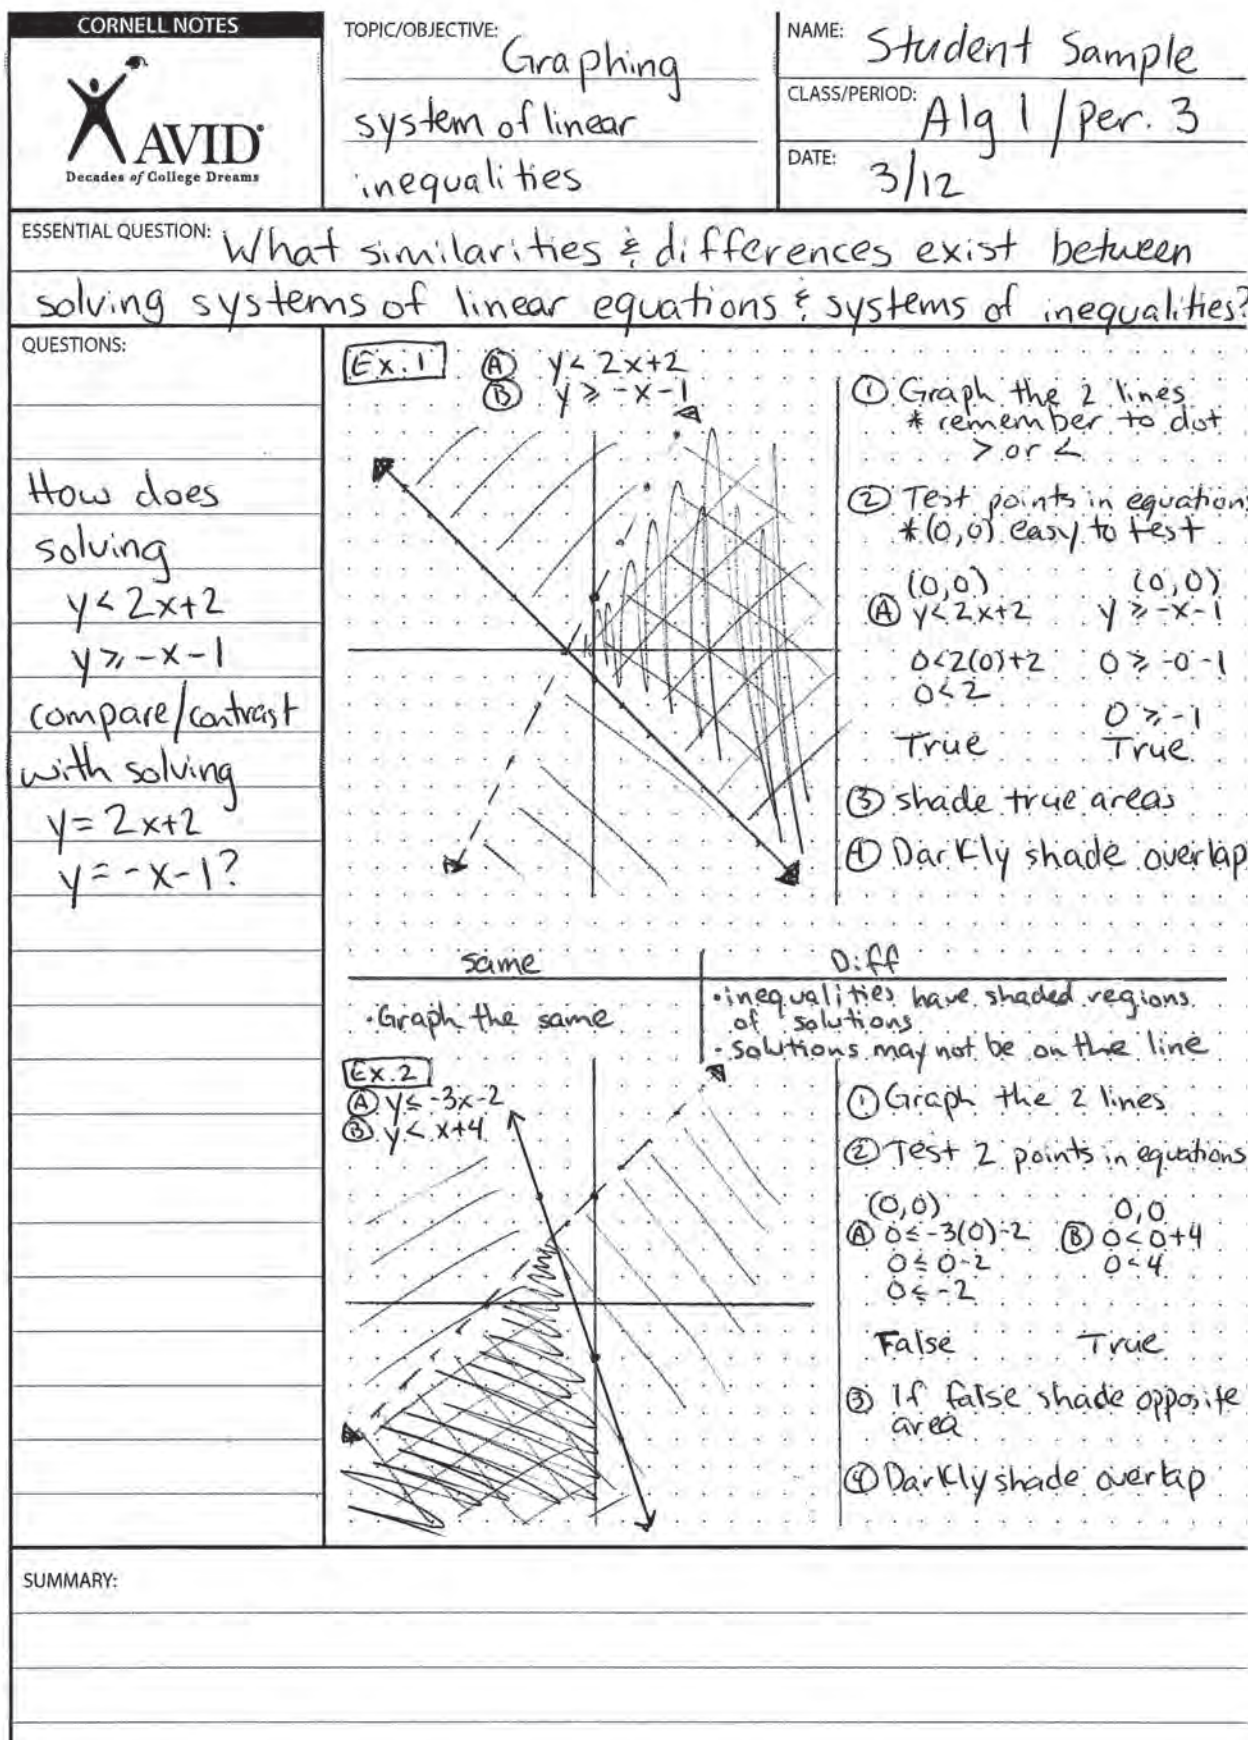 CORNELL NOTES
AVID®
Decades of College Dreams
TOPIC/OBJECTIVE: Graphing
system of linear
inequalities
NAME: Student Sample
CLASS/PERIOD: Alg 1 / Per. 3
DATE: 3/12
ESSENTIAL QUESTION: What similarities & differences exist between
solving systems of linear equations & systems of inequalities?
QUESTIONS:
How does
solving
y < 2x+2
y ≥ -x-1
compare/contrast
with solving
y = 2x+2
y = -x-1?
Ex. 1 Ⓐ y < 2x+2
Ⓑ y ≥ -x-1
① Graph the 2 lines
* remember to dot
> or <
② Test points in equations
* (0,0) easy to test
(0,0) (0,0)
Ⓐ y < 2x+2 y ≥ -x-1
0<2(0)+2 0 ≥ -0-1
0<2
0 ≥ -1
True True
③ shade true areas
④ Darkly shade overlap
same Diff
• Graph the same
• inequalities have shaded regions
of solutions
• solutions may not be on the line
Ex. 2
Ⓐ y ≤ -3x-2
Ⓑ y < x+4
① Graph the 2 lines
② Test 2 points in equations
(0,0) 0,0
Ⓐ 0 ≤ -3(0)-2 Ⓑ 0 < 0+4
0 ≤ 0-2 0 < 4
0 ≤ -2
False True
③ If false shade opposite
area
④ Darkly shade overlap
SUMMARY: